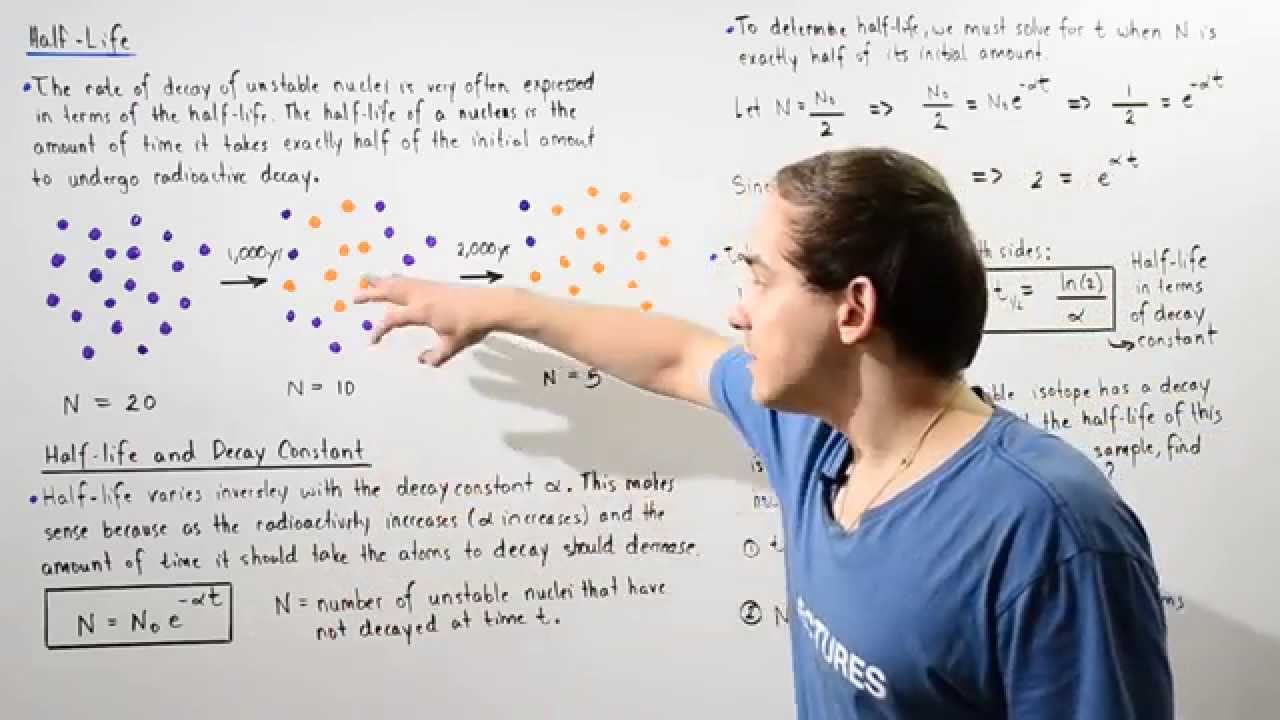 Half-Life
•The rate of decay of unstable nuclei is very often expressed
in terms of the half-life. The half-life of a nucleus is the
amount of time it takes exactly half of the initial amount
to undergo radioactive decay.
1,000yr
2,000yr
N = 20
N = 10
N = 5
Half-life and Decay Constant
•Half-life varies inversley with the decay constant α. This makes
sense because as the radioactivity increases (α increases) and the
amount of time it should take the atoms to decay should decrease.
N = N₀e^-αt
N = number of unstable nuclei that have
not decayed at time t.
•To determine half-life, we must solve for t when N is
exactly half of its initial amount.
Let N = N₀/2 => N₀/2 = N₀e^-αt => 1/2 = e^-αt
=> 2 = e^αt
sides:
t₁/₂ = ln(2)/α
Half-life
in terms
of decay
constant
isotope has a decay
the half-life of this
sample, find
?
①
② N